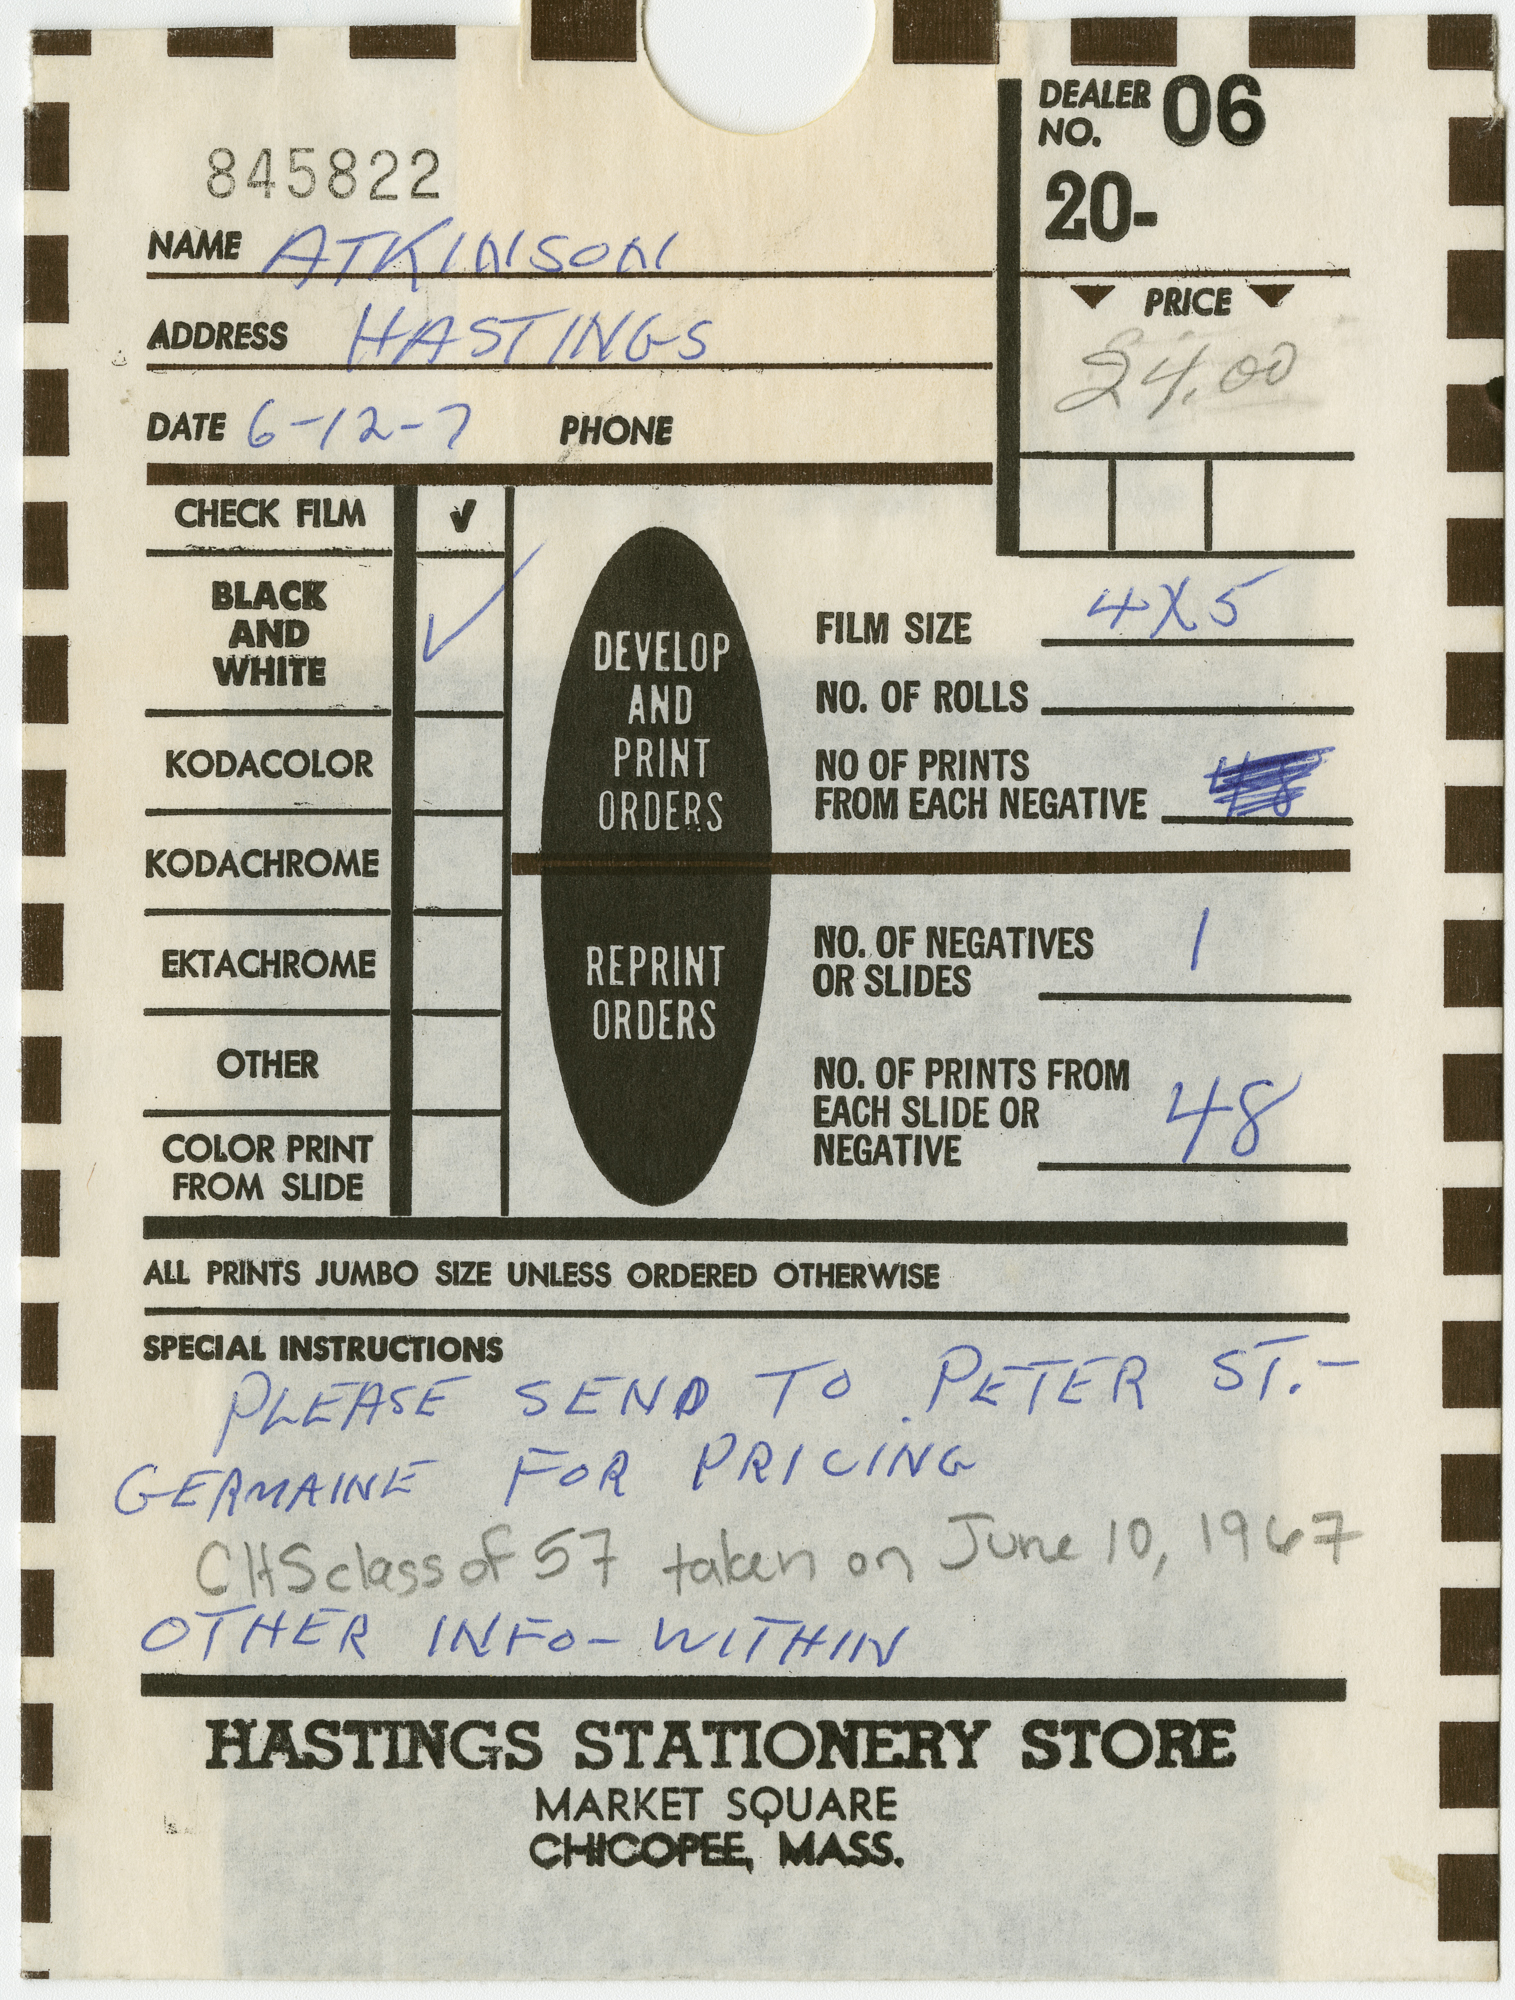 DEALER NO. 06
20-
845822
NAME ATKINSON
PRICE
24.00
ADDRESS HASTINGS
DATE 6-12-7 PHONE
CHECK FILM ✓
BLACK AND WHITE ✓
KODACOLOR
KODACHROME
EKTACHROME
OTHER
COLOR PRINT
FROM SLIDE
DEVELOP
AND
PRINT
ORDERS
FILM SIZE 4X5
NO. OF ROLLS
NO OF PRINTS
FROM EACH NEGATIVE 48
REPRINT
ORDERS
NO. OF NEGATIVES
OR SLIDES 1
NO. OF PRINTS FROM
EACH SLIDE OR
NEGATIVE 48
ALL PRINTS JUMBO SIZE UNLESS ORDERED OTHERWISE
SPECIAL INSTRUCTIONS
PLEASE SEND TO PETER ST.-
GERMAINE FOR PRICING
CHS class of 57 taken on June 10, 1967
OTHER INFO- WITHIN
HASTINGS STATIONERY STORE
MARKET SQUARE
CHICOPEE, MASS.